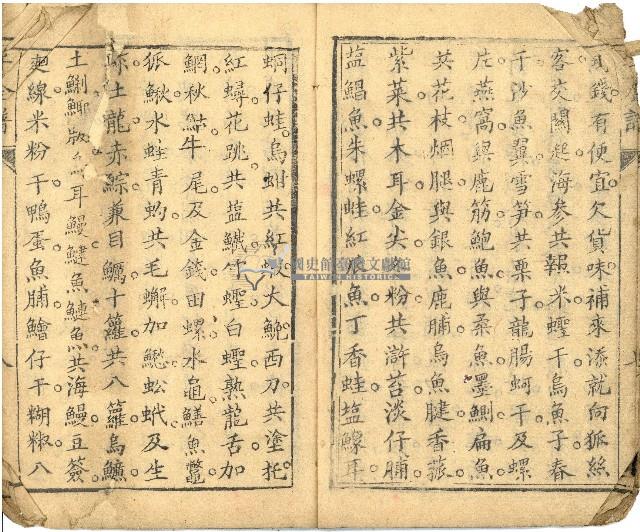 錢有便宜欠貨味補來添就向狐絲
客交關起海參共報米蟶干烏魚子春
干沙魚翼雪笋共栗子龍腸蚵干及螺
茋燕窩與鹿筋鮑魚與柔魚墨鰂扁魚
共花枝烟腿與銀魚鹿脯烏魚腱香菰
紫菜共木耳金尖粉共滸苔淡仔脯
塩鯧魚朱螺蛙紅魚丁香蛙塩鰇耳
蚵仔蛙烏蚶共紅大鮑西刀共塗托
紅蟳花跳共塩白蟶熟龍舌加
鯛秋牛尾及金錢田螺水龜鱔魚鱉
狐鰍水蛙青共毛蠏加蚣蛾及生
土龍赤鯮兼目鱲十籮共八籮烏
土鯽版耳鰻鰱魚共海鰻豆簽
麵線米粉干鴨蛋魚脯鱠仔干糊椒八
國史館臺灣文獻館
TAIWAN HISTORICA